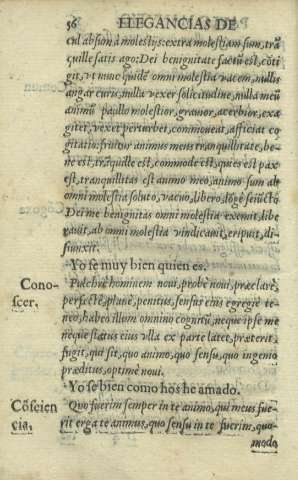 56 ELEGANCIAS DE
cul absum à molestijs: extra molestiam sum, trã
quille satis ago: Dei benignitate factũ est, cõti
git, vt nunc quidẽ omni molestia vacem, nullis
angar curis, nulla vexer solicitudine, nulla meũ
animũ paullo molestior, gravior, acerbior, exa
gitet, vexet perturbet, commoveat, afficiat co
gitatio: fruitur animus meus tranquillitate, be-
ne est, trãquille est, commode est, quies est pax
est, tranquillitas est animo meo, animo sum ab
omni molestia soluto, vacuo, libero, lõge seiũcto
Dei me benignitas omni molestia exemit, libe
rauit, ab omni molestia vindicauit, eripuit, di-
siunxit.
Yo se muy bien quien es.
Cono-
scer,
Pulchrè hominem noui, probè noui, præclarè,
perfectè, planè, penitus, sensus eius egregiè te-
neo, habeo illum omnino cognitũ, neque ipse me
neque status eius vlla ex parte latet, præterit,
fugit, qui sit, quo animo, quo sensu, quo ingenio
præditus, optimè noui.
Yo se bien como hos he amado.
Cõscien
cia,
Quo fuerim semper in te animo, qui meus fue-
rit erga te animus, quo sensu in te fuerim, quo-
modo